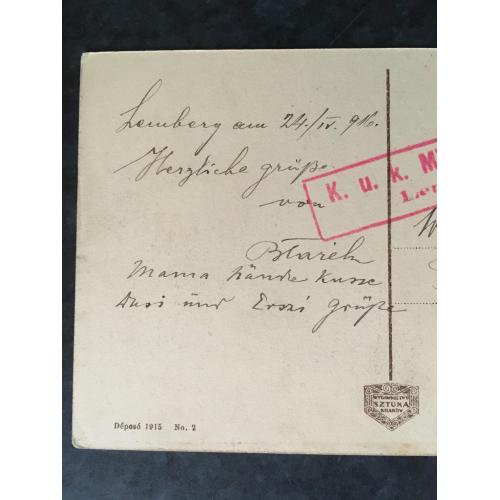 Lemberg am 24./IV. 916.
Herzliche grüße
von
Mama Hände Kusse
Dusi und Erszi Grüße
K. u. k. M
WYDAWNICTWO
SZTUKA
KRAKÓW
Déposé 1915 No. 2